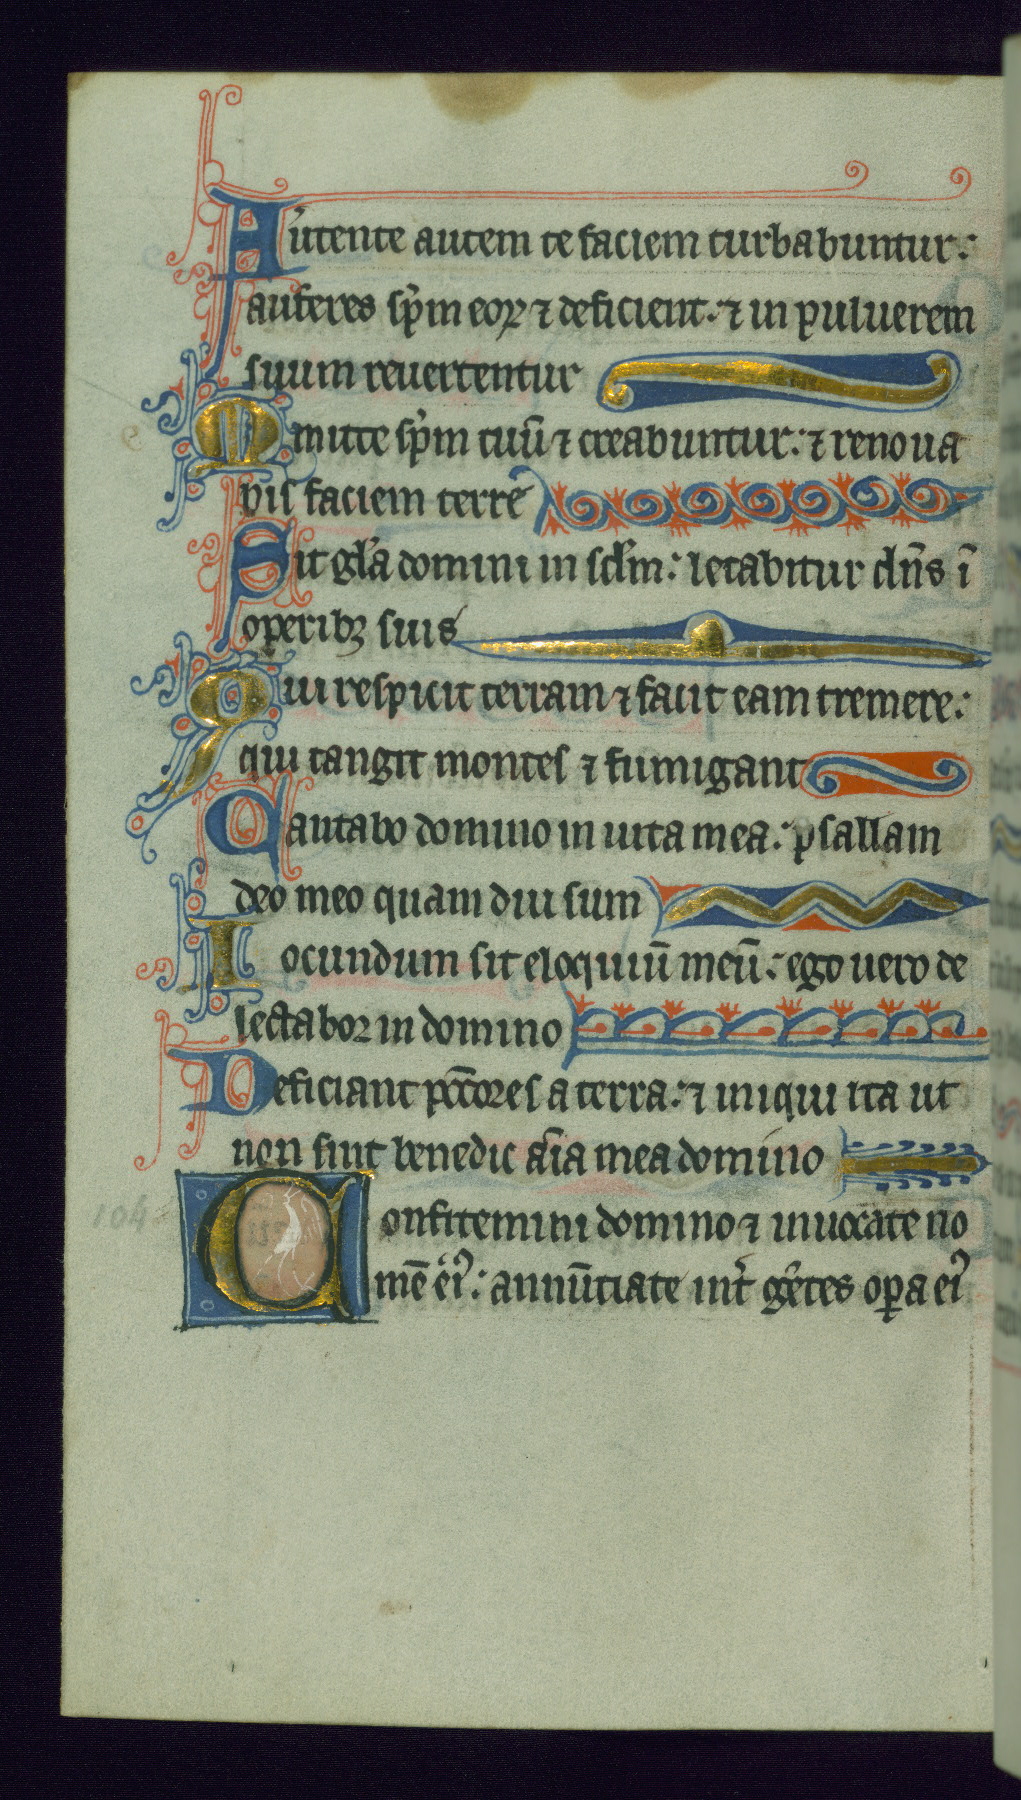 Autente autem te faciem turbabuntur:
auferes sp̄m eoꝝ ⁊ deficient. ⁊ in puluerem
suum reuertentur
Emitte sp̄m tuū ⁊ creabuntur: ⁊ renoua
bis faciem terre
Sit gl̄a domini in sc̄lm: letabitur dn̄s ī
operibꝫ suis
Qui respicit terram ⁊ facit eam tremere:
qui tangit montes ⁊ fumigant
Cantabo domino in uita mea: psallam
deo meo quam diu sum
Iocundum sit eloquiū meū: ego uero de
lectabor in domino
Deficiant pc̄cores a terra: ⁊ iniqui ita ut
non sint benedic aīa mea domino
104
Confitemini domino ⁊ inuocate no
mē eiꝰ: annūciate int̄ gētes oꝑa eiꝰ